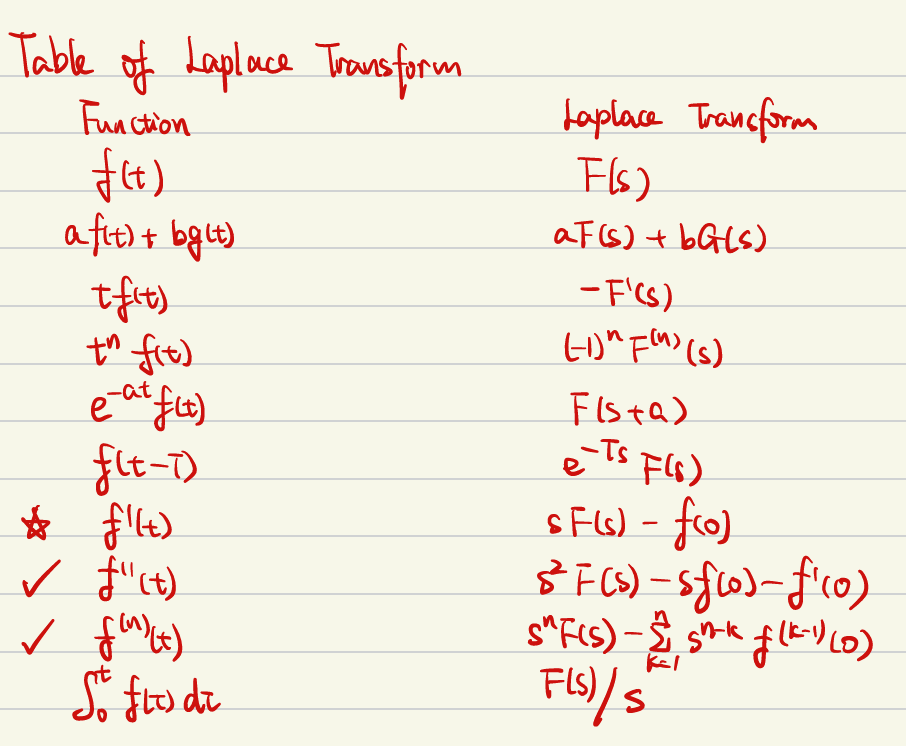 Table of Laplace Transform
Function Laplace Transform
f(t) F(s)
af(t) + bg(t) aF(s) + bG(s)
tf(t) -F'(s)
tⁿ f(t) (-1)ⁿ F⁽ⁿ⁾(s)
e^{-at} f(t) F(s+a)
f(t-T) e^{-Ts} F(s)
☆ f'(t) sF(s) - f(0)
✓ f''(t) s² F(s) - sf(0) - f'(0)
✓ f⁽ⁿ⁾(t) sⁿF(s) - ∑_{k=1}^{n} s^{n-k} f^{(k-1)}(0)
∫₀ᵗ f(τ) dτ F(s)/s